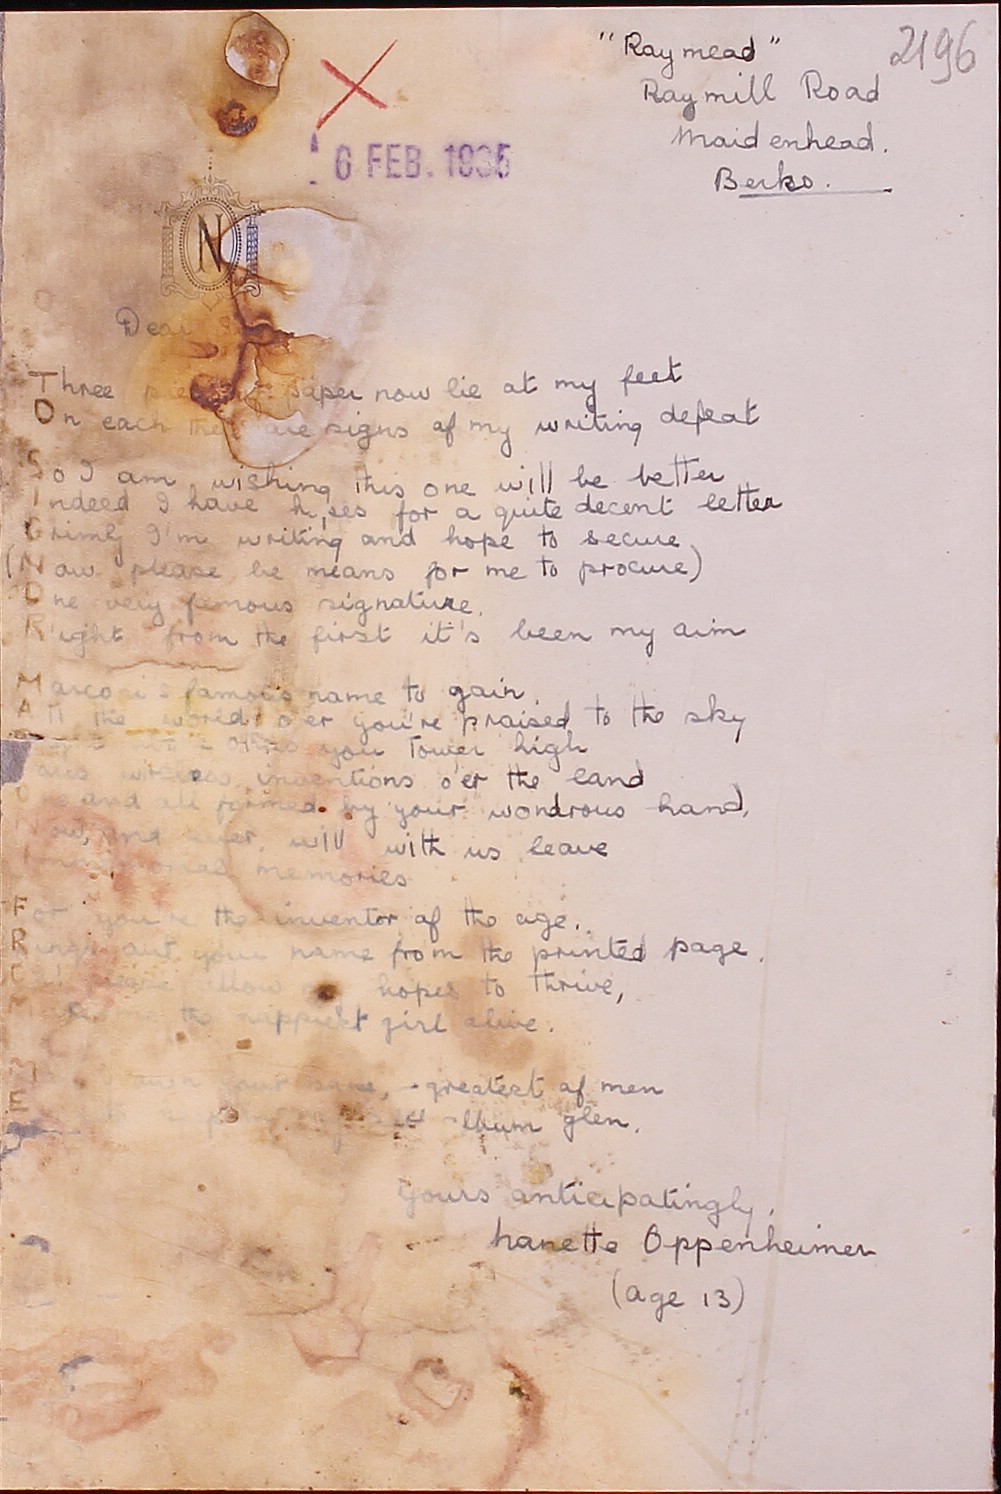 "Raymead"
2196
Raymill Road
Maidenhead.
Berks.
6 FEB. 1935
N
Dear
Three paper now lie at my feet
On each there are signs of my writing defeat
So I am wishing this one will be better
Indeed I have hopes for a quite decent letter
Grimly I'm writing and hope to secure
(Now please be means for me to procure)
One very famous signature.
Right from the first it's been my aim
Marconi's famous name to gain.
All the world o'er you're praised to the sky
others you tower high
wireless inventions o'er the land
and all formed by your wondrous hand,
Now, and ever, will with us leave
memories
For you're the inventor of the age.
Rings out your name from the printed page.
please allow my hopes to thrive,
Make me the happiest girl alive.
your name, - greatest of men
album glen.
Yours anticipatingly,
Nanette Oppenheimer
(age 13)